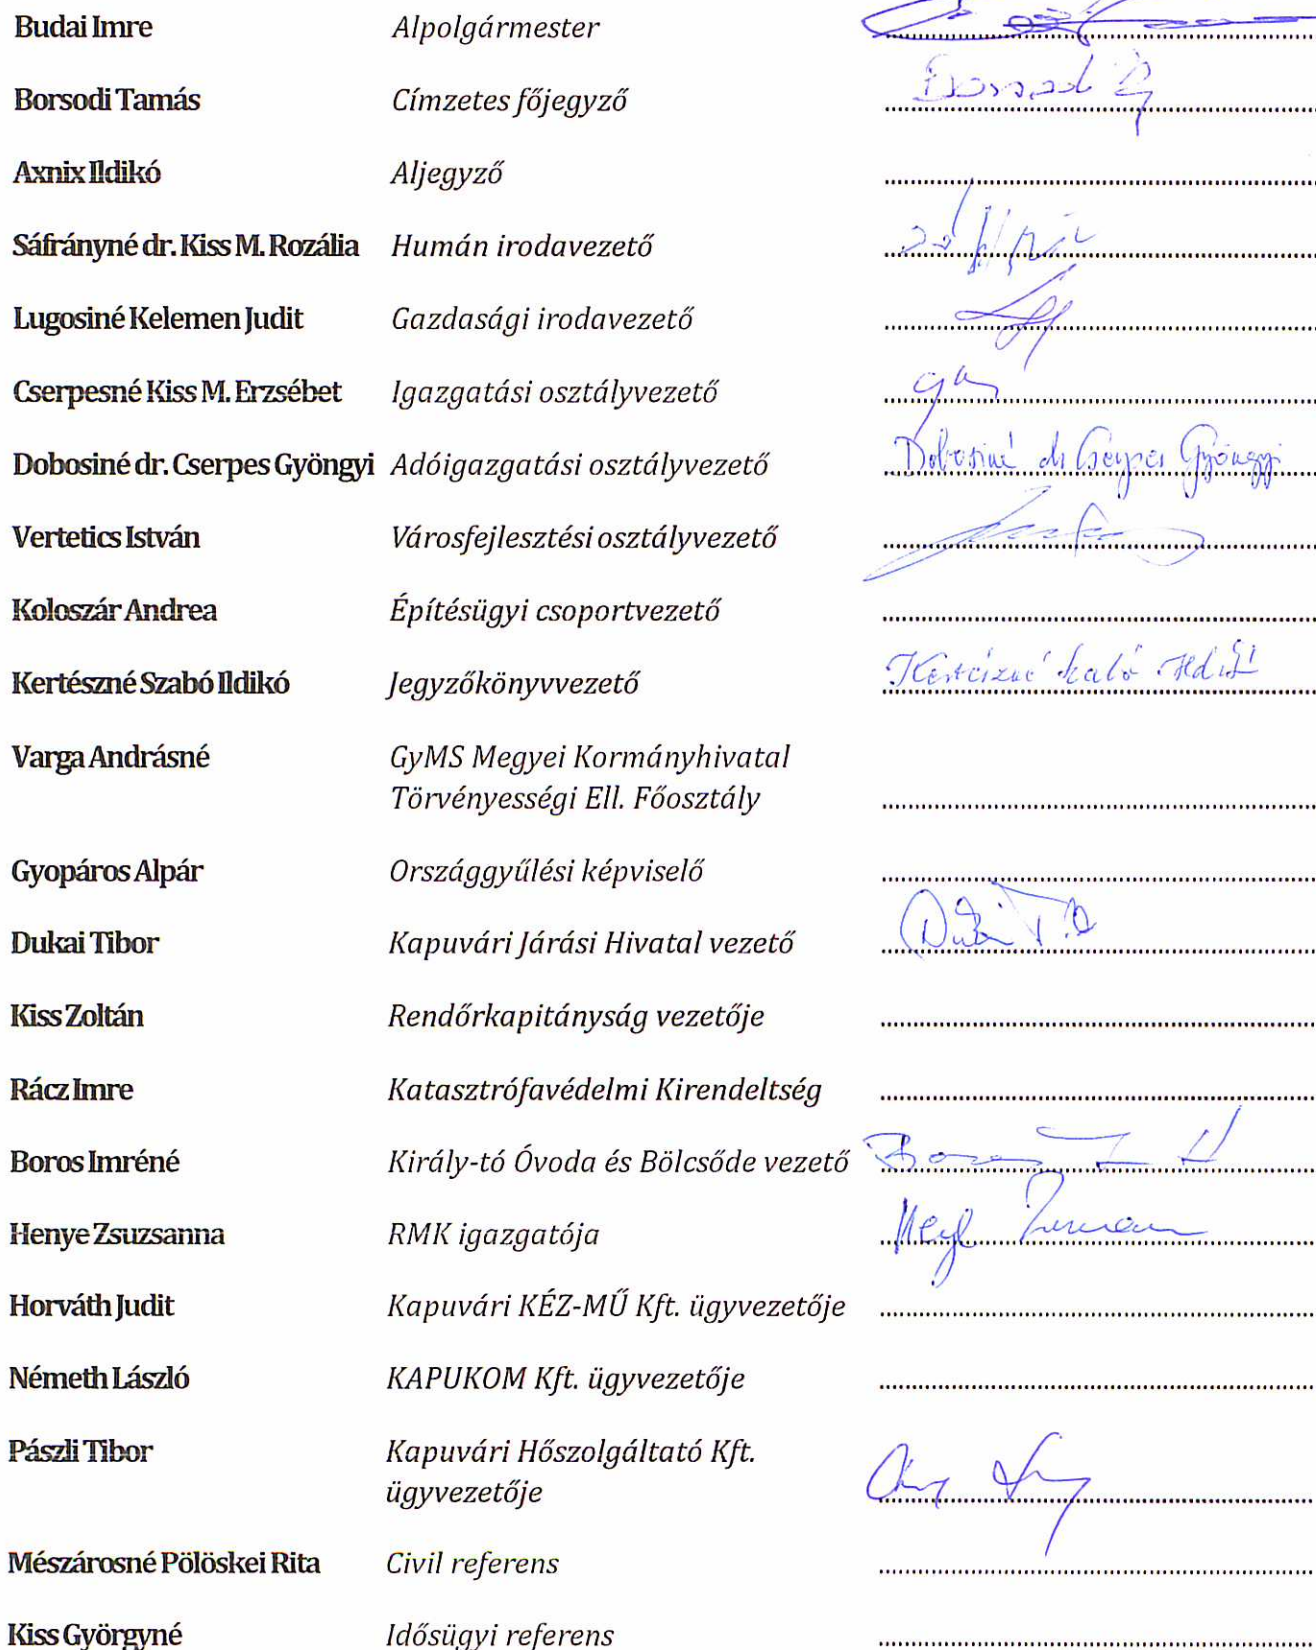 Budai Imre Alpolgármester
Borsodi Tamás Címzetes főjegyző
Axnix Ildikó Aljegyző
Sáfrányné dr. Kiss M. Rozália Humán irodavezető
Lugosiné Kelemen Judit Gazdasági irodavezető
Cserpesné Kiss M. Erzsébet Igazgatási osztályvezető
Dobosiné dr. Cserpes Gyöngyi Adóigazgatási osztályvezető Dobosiné dr Cserpes Gyöngyi
Vertetics István Városfejlesztési osztályvezető
Koloszár Andrea Építésügyi csoportvezető
Kertészné Szabó Ildikó Jegyzőkönyvvezető Kertészné Szabó Ildikó
Varga Andrásné GyMS Megyei Kormányhivatal
Törvényességi Ell. Főosztály
Gyopáros Alpár Országgyűlési képviselő
Dukai Tibor Kapuvári Járási Hivatal vezető
Kiss Zoltán Rendőrkapitányság vezetője
Rácz Imre Katasztrófavédelmi Kirendeltség
Boros Imréné Király-tó Óvoda és Bölcsőde vezető
Henye Zsuzsanna RMK igazgatója
Horváth Judit Kapuvári KÉZ-MŰ Kft. ügyvezetője
Németh László KAPUKOM Kft. ügyvezetője
Pászli Tibor Kapuvári Hőszolgáltató Kft.
ügyvezetője
Mészárosné Pölöskei Rita Civil referens
Kiss Györgyné Idősügyi referens